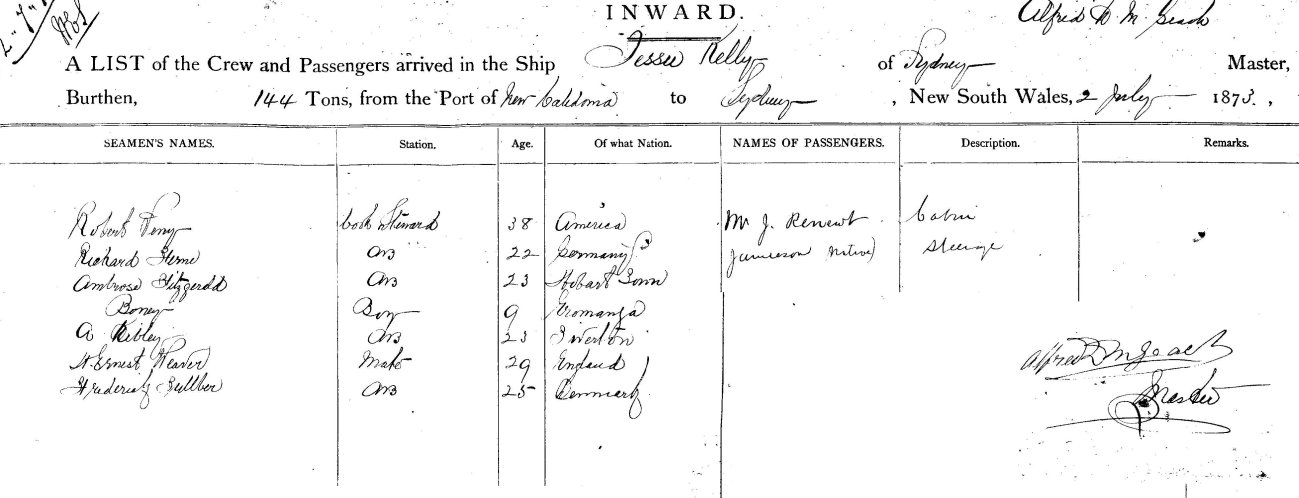 INWARD.
Alfred
A LIST of the Crew and Passengers arrived in the Ship Jessie Kelly of Sydney Master,
Burthen, 144 Tons, from the Port of New Caledonia to Sydney , New South Wales, 2 July 1873. ,
SEAMEN'S NAMES. Station. Age. Of what Nation. NAMES OF PASSENGERS. Description. Remarks.
Robert Cook Steward 38 America Mr J. Cabin
Richard AB 22 Germany Jamieson Native) Steerage
Ambrose Fitzgerald AB 23 Hobart Town
Boney Boy 9 Eromanga
A AB 23 Tiverton
Ernest Weaver Mate 29 England
Frederick AB 25 Denmark
Alfred
Master